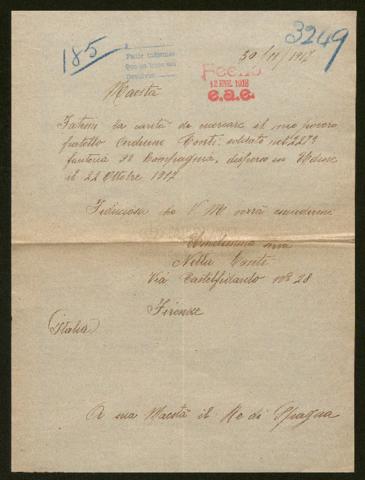 185
3249
30/11/1917
Fecho
12 ENE. 1918
e.a.e.
Maestà
Fatemi la carità di cercare il mio povero
fratello Conti soldato nel 227°
fanteria Compagnia, disperso in Udine
il 22 Ottobre 1917
Fiduciosa che V M vorrà esaudirmi
Umilissima
Nella Conti
Via Castelfidardo N° 28
Firenze
(Italia)
A sua Maestà il Re di Spagna